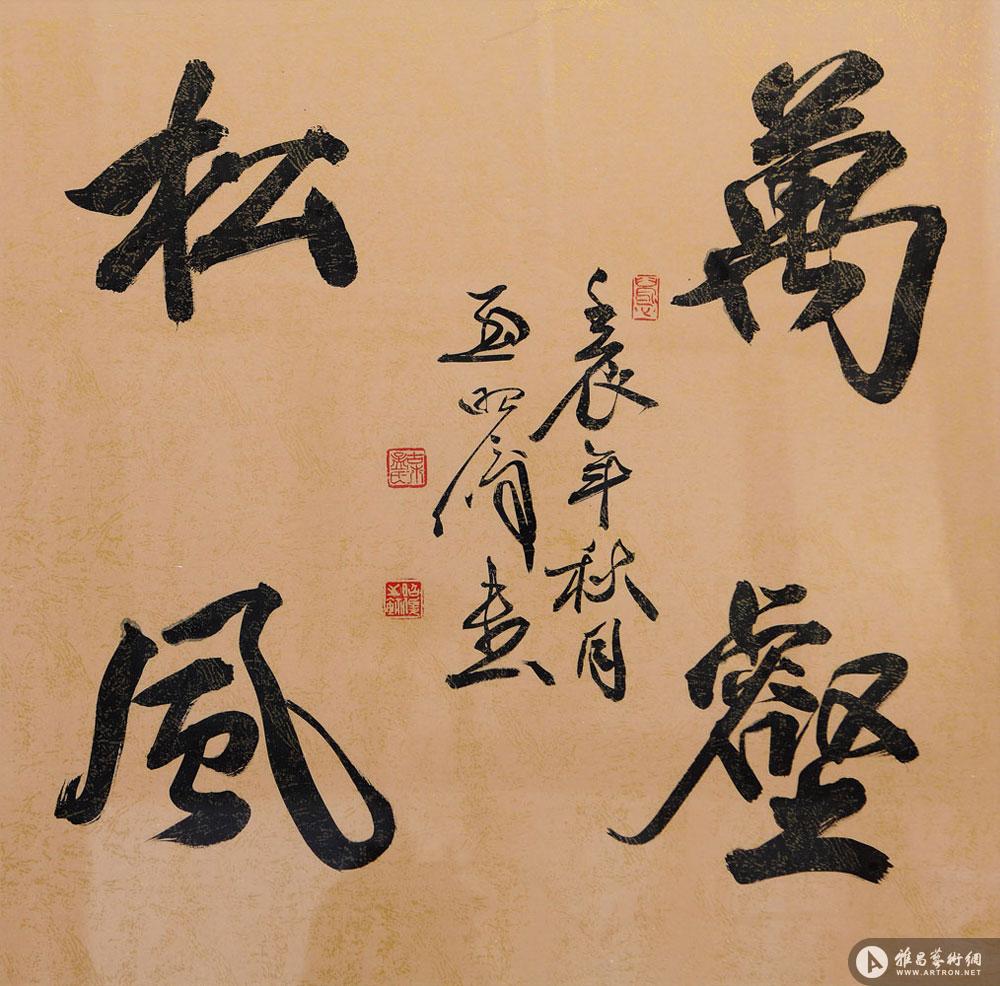 萬壑
松風
壬辰年秋月
書
雅昌藝術網
WWW.ARTRON.NET